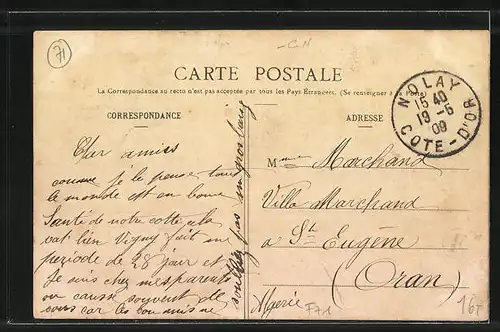 71
C.N
CARTE POSTALE
La Correspondance au recto n'est pas acceptée par tous les Pays Étrangers. (Se renseigner à la Poste)
CORRESPONDANCE
ADRESSE
NOLAY
15 40
19 - 5
09
COTE-D'OR
Cher amiss
comme je le pense tous
le monde est en bonne
Santé de notre cotté cela
vat bien Vigny fait une
periode de 28 jour et
Je suis chez mes parents
on causse souvent de
vous car les bon amis ne
soublier pas un gros
Mme Marchand
Villa Marchand
a St Eugène
(Oran)
Algerie
F71
16F